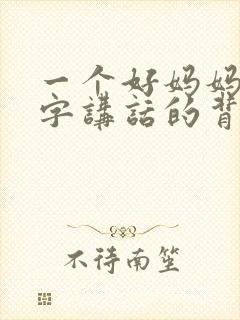 一个好妈妈
字講話的背
不待南笙